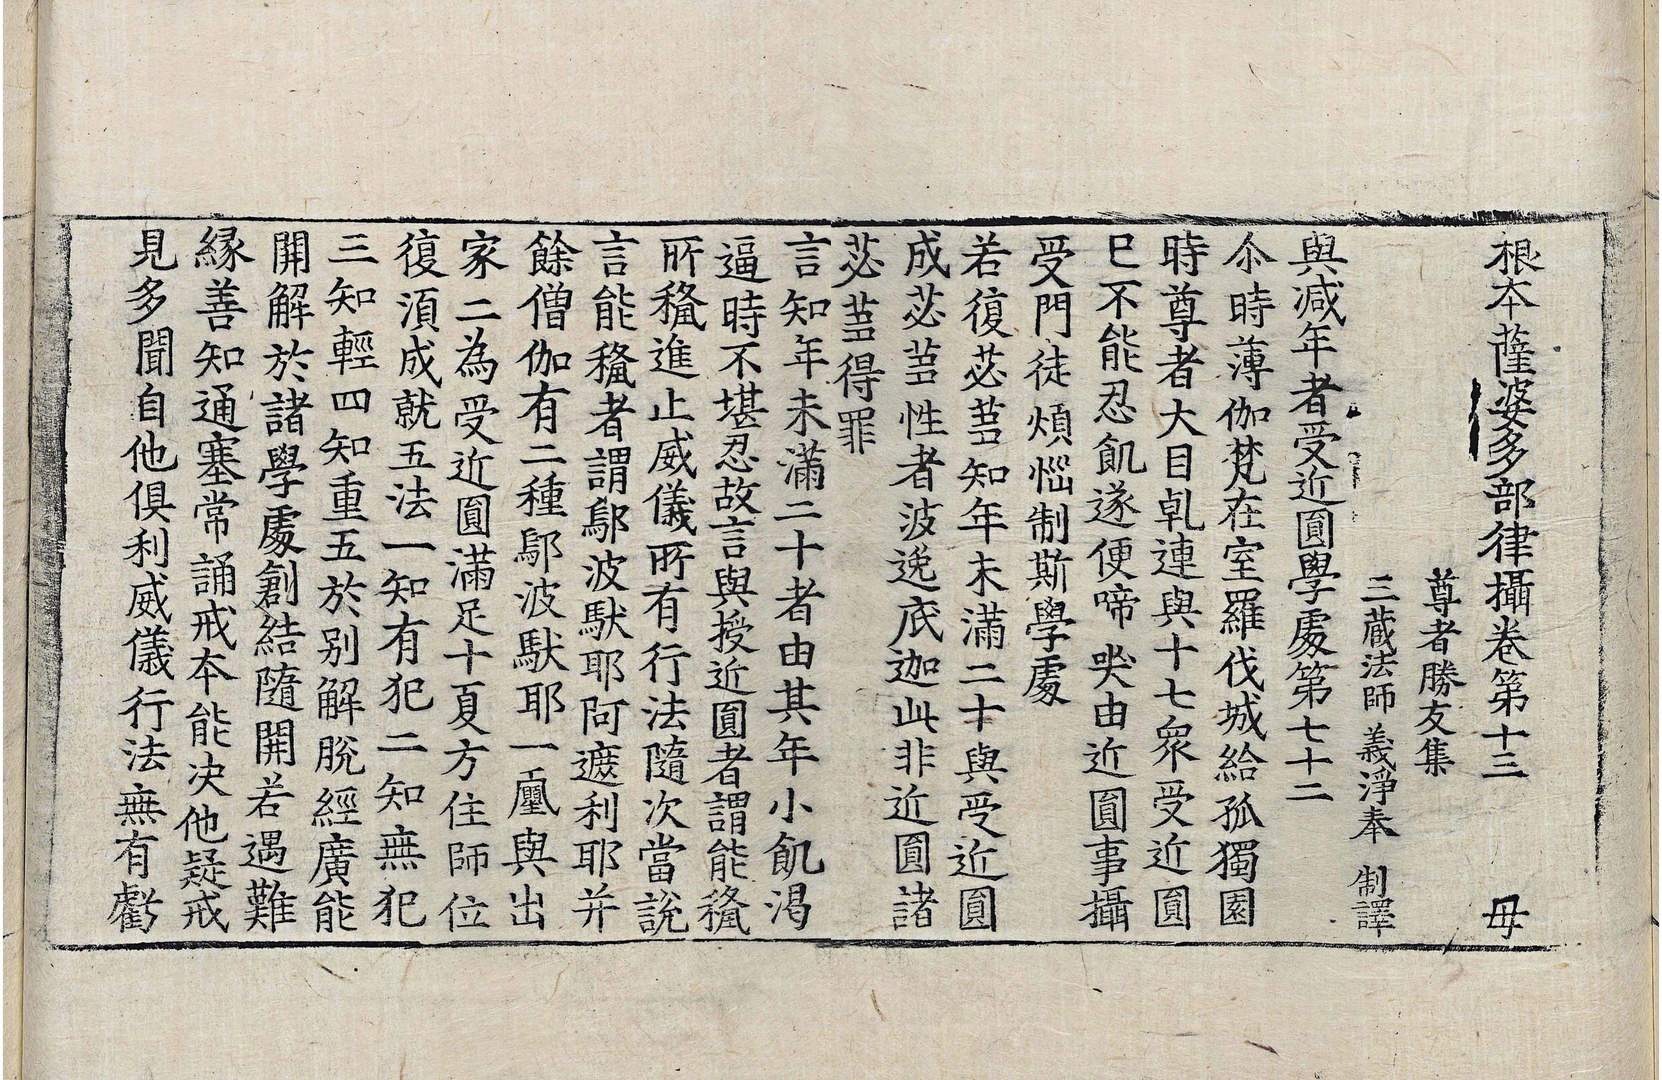 根本薩婆多部律攝卷第十三　母
尊者勝友集
三藏法師義淨奉　制譯
與減年者受近圓學處第七十二
尒時薄伽梵在室羅伐城給孤獨園
時尊者大目乹連與十七衆受近圓
巳不能忍飢遂便啼哭由近圓事攝
受門徒煩惱制斯學處
若復苾芻知年未滿二十與受近圓
成苾芻性者波逸底迦此非近圓諸
苾芻得罪
言知年未滿二十者由其年小飢渴
逼時不堪忍故言與授近圓者謂能䅻
所䅻進止威儀所有行法隨次當說
言能䅻者謂鄔波馱耶阿遮利耶并
餘僧伽有二種鄔波馱耶一𠪨與出
家二為受近圓滿足十夏方住師位
復須成就五法一知有犯二知無犯
三知輕四知重五於别解脫經廣能
開解於諸學處創結隨開若遇難
緣善知通塞常誦戒本能决他疑戒
見多聞自他俱利威儀行法無有虧